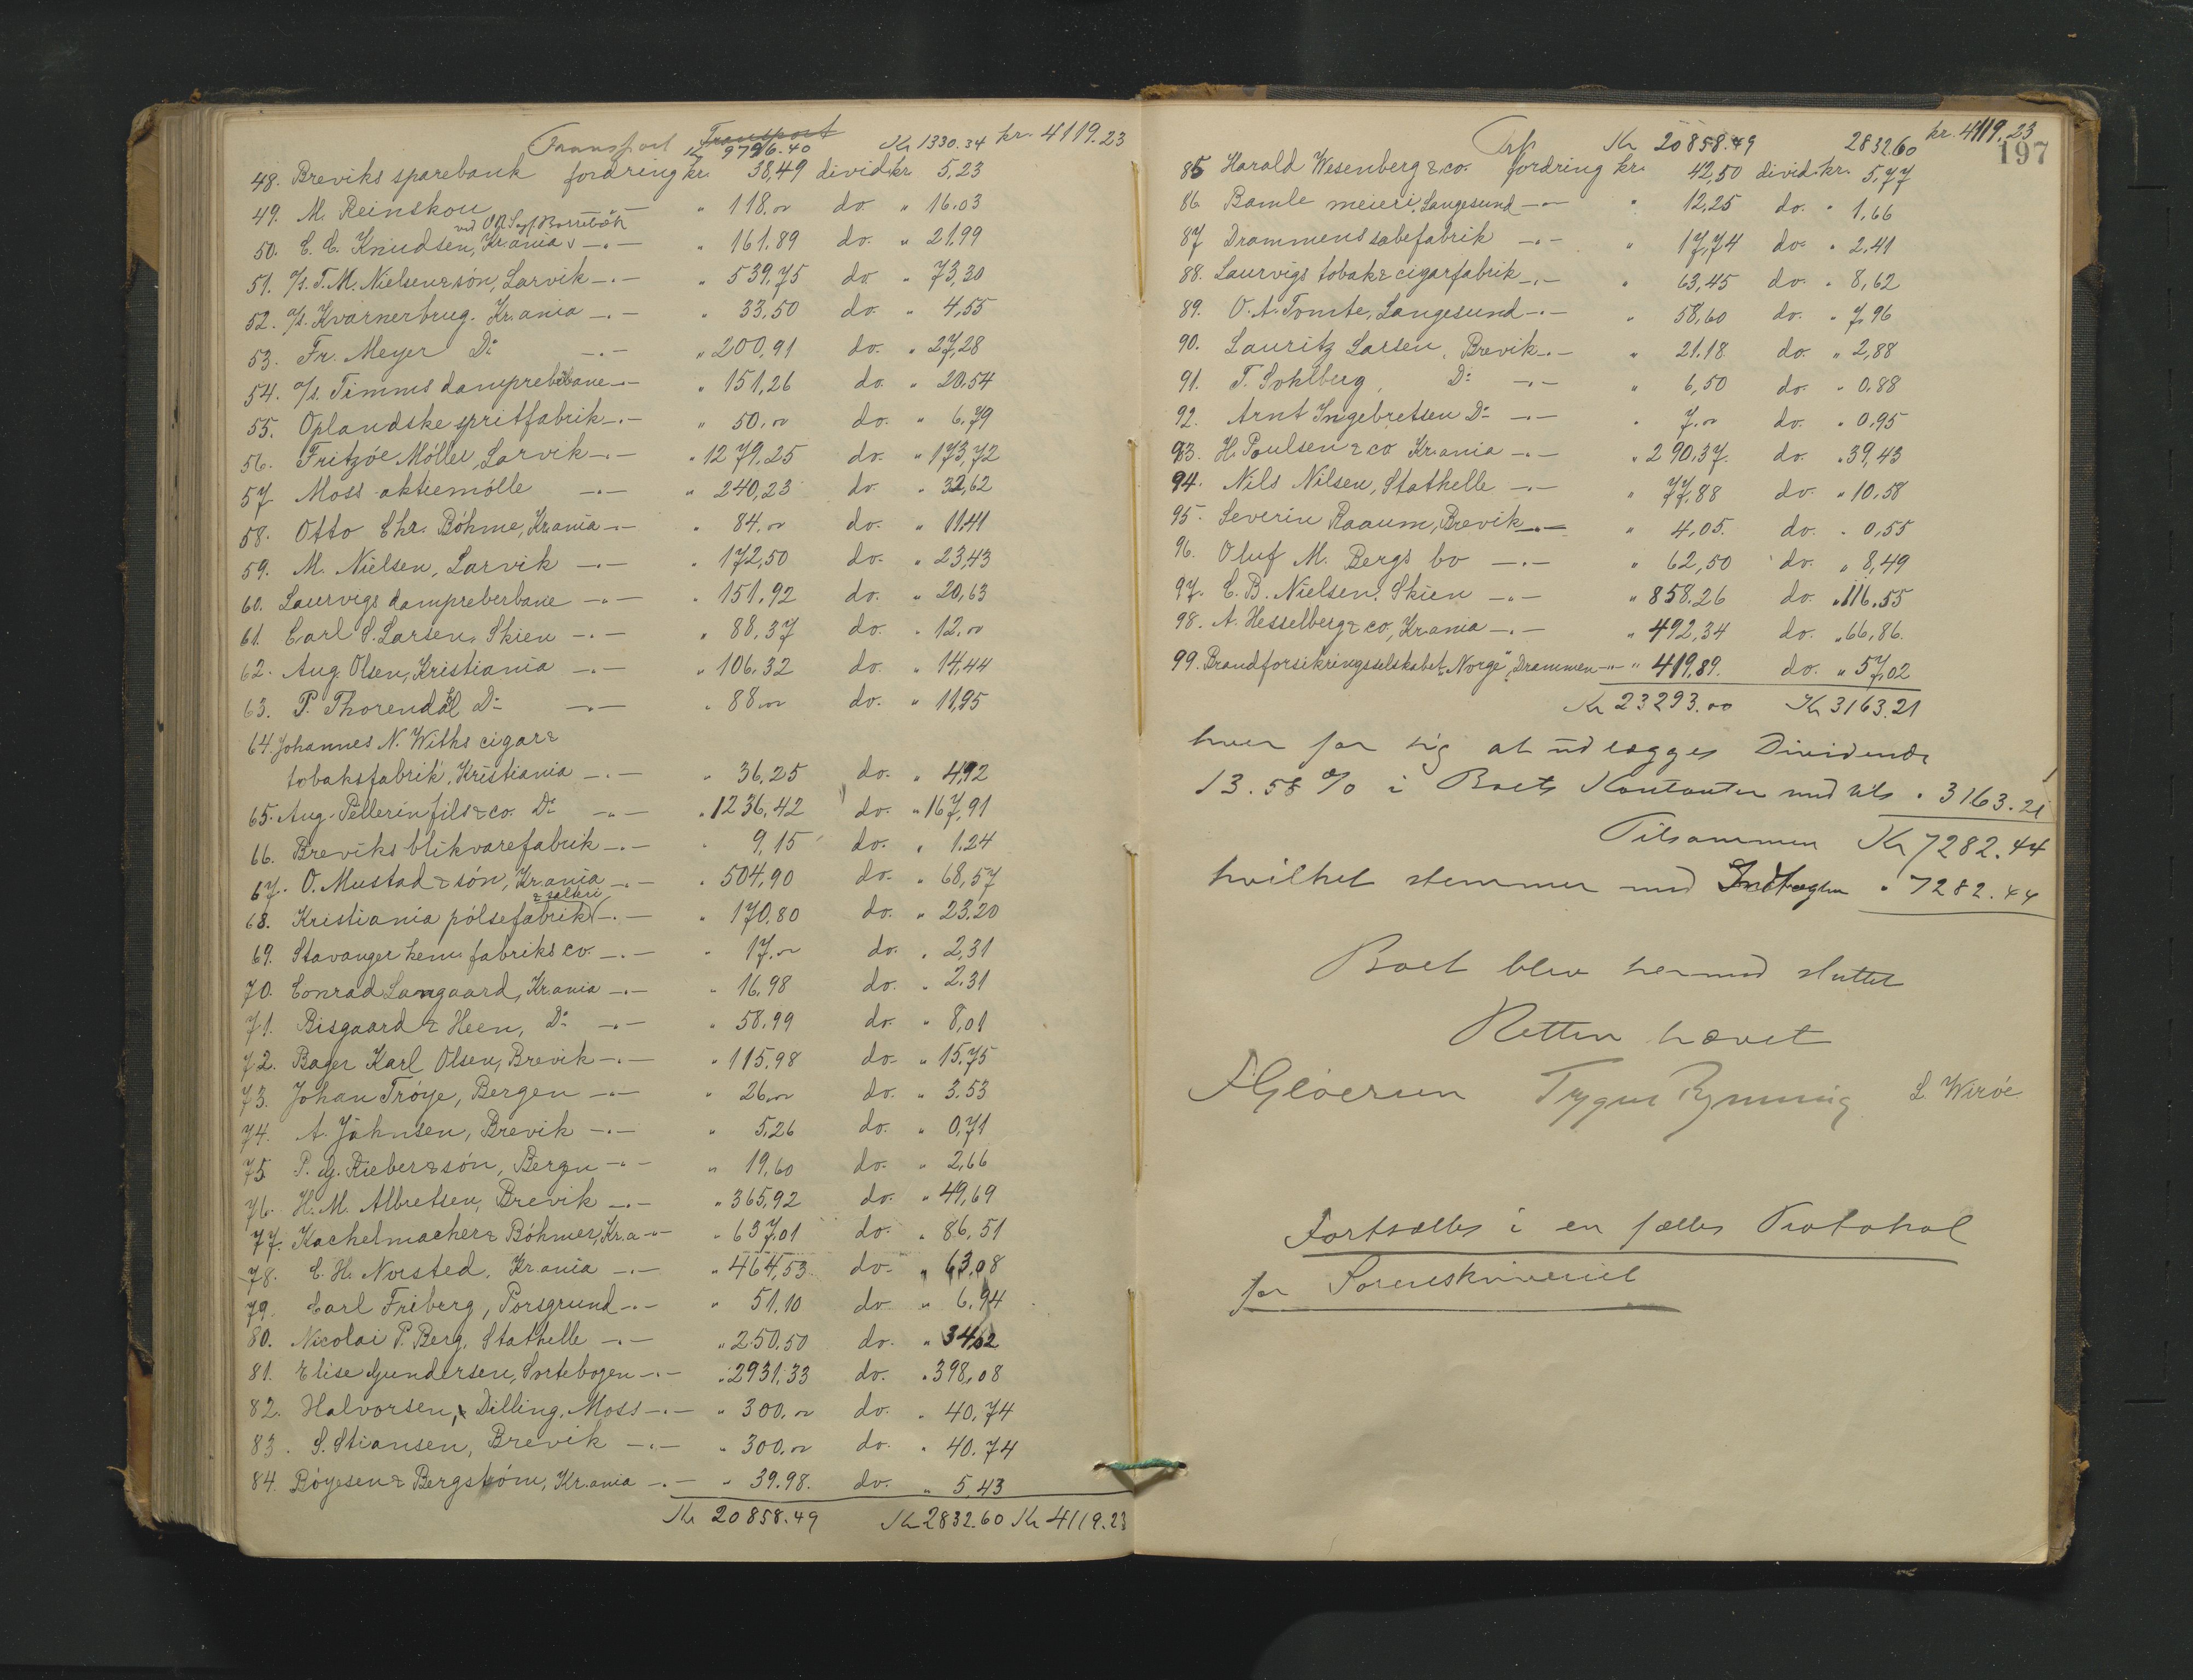 Transport Transport kr. 4119.23
Kr 9796.40 Kr 1330.34
48. Breviks sparebank fordring kr. 38,49 divid. kr 5,23
49. M. Reinskou —.— " 118.00 do. " 16.03
50. C. C. Knudsen, Kr.ania —.— " 161.89 do. " 21.99
51. A/s. T. M. Nielsen & sön, Larvik —.— " 539,75 do. " 73,30
52. A/s. Kværnerbrug. Kr.ania —.— " 33,50 do. " 4,55
53. Fr. Meyer Do —.— " 200,91 do. " 27,28
54. A/s. Timms dampreberbane —.— " 151,26 do. " 20.54
55. Oplandske spritfabrik —.— " 50.00 do. " 6,79
56. Fritzöe Möller, Larvik —.— " 1279.25 do. " 173,72
57 Moss aktiemölle —.— " 240,23 do. " 32,62
58. Otto Chr. Böhme, Kr.ania —.— " 84.00 do. " 11.41
59. M. Nielsen, Larvik —.— " 172,50 do. " 23,43
60. Laurvigs dampreberbane —.— " 151.92 do. " 20,63
61. Carl S. Larsen, Skien —.— " 88.37 do. " 12.00
62. Aug. Olsen, Kristiania —.— " 106.32 do. " 14,44
63. P. Thorendal Do —.— " 88.00 do. " 11,95
64. Johannes N. Withs cigar &
tobaksfabrik, Kristiania —.— " 36.25 do. " 4,92
65. Aug. Pellerin fils & co. Do —.— " 1236,42 do. " 167,91
66. Breviks blikvarefabrik —.— " 9,15 do. " 1.24
67. O. Mustad & sön, Kr.ania —.— " 504,90 do. " 68,57
& salteri
68. Kristiania pölsefabrik —.— " 170.80 do. " 23.20
69. Stavanger hem. fabriks co. —.— " 17.00 do. " 2,31
70. Conrad Langaard, Kr.ania —.— " 16.98 do. " 2.31
71. Bisgaard & Heen, Do —.— " 58.99 do. " 8,01
72. Bager Karl Olsen, Brevik —.— " 115.98 do. " 15.75
73. Johan Tröye, Bergen —.— " 26.00 do. " 3.53
74. A. Jahnsen, Brevik —.— " 5.26 do. " 0,71
75 P. G. Rieber & sön, Bergen —.— " 19,60 do. " 2,66
76. H. M. Albretsen, Brevik —.— " 365,92 do. " 49,69
77. Kachelmacher & Böhmer, Kr.a —.— " 637,01 do. " 86,51
78. C. H. Norsted, Kr.ania —.— " 464,53 do. " 63,08
79. Carl Friberg, Porsgrund —.— " 51.10 do. " 6.94
80. Nicolai P. Berg, Stathelle —.— " 250.50 do. " 34,02
81. Elise Gundersen, Sortebogen —.— " 2931.33 do. " 398,08
82. Halvorsen, Dilling, Moss —.— " 300.00 do. " 40,74
83. S. Stiansen, Brevik —.— " 300.00 do. " 40.74
84. Böyesen & Bergström, Kr.ania —.— " 39.98. do. " 5,43
Kr 20858.49 Kr 2832.60 Kr 4119.23
Trp Kr 20858.49 2832.60 kr. 4119.23
197
85 Harald Wesenberg & co. fordring kr. 42,50 divid. kr. 5,77
86. Bamle meieri, Langesund —.— " 12,25 do. " 1,66
87 Drammens sæbefabrik —.— " 17,74 do. " 2,41
88. Laurvigs tobak & cigarfabrik —.— " 63,45 do. " 8,62
89. O. A. Tomte, Langesund —.— " 58,60 do. " 7,96
90. Lauritz Larsen, Brevik —.— " 21.18 do. " 2,88
91. T. Sohlberg, Do —.— " 6,50 do. " 0.88
92. Arnt Ingebretsen Do —.— " 7.00 do. " 0,95
93. H. Poulsen & co Kr.ania —.— " 290,37. do. " 39,43
94. Nils Nilsen, Stathelle —.— " 77,88 do. " 10.58
95. Severin Raaum, Brevik —.— " 4,05. do. " 0,55
96. Oluf M. Bergs bo —.— " 62,50 do. " 8,49
97. C. B. Nielsen, Skien —.— " 858.26 do. " 116.55
98. A. Hesselberg & co, Kr.ania —.— " 492,34 do. " 66,86.
99. Brandforsikringsselskabet "Norge", Drammen —.— " 419,89. do. " 57,02
Kr 23293.00 Kr 3163.21
hver for sig at udlægges Dividende
13.58 % i Boets Kontanter med tils. " 3163.21
Tilsammen Kr 7282.44
hvilket stemmer med Indtægten " 7282.44
Boet blev hermed sluttet
Retten hævet
Trygve Rynning L Wiröe
Fortsættes i en fælles Protokol
for Sorenskriveriet